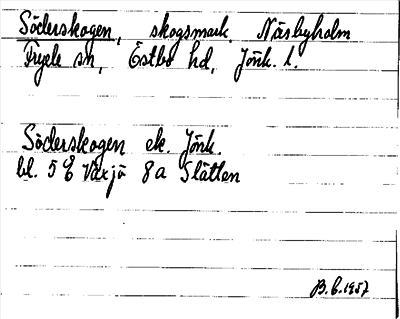 Söderskogen, skogsmark. Näsbyholm
Fryele sn, Östbo hd, Jönk. l.
Söderskogen ek. Jönk.
bl. 5 E Växjö 8a Slätten
B.E. 1957